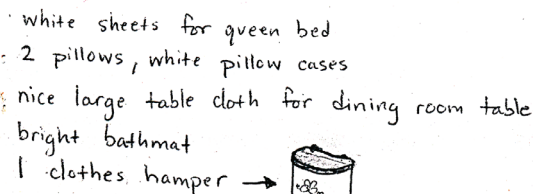 · white sheets for queen bed
· 2 pillows, white pillow cases
· nice large table cloth for dining room table
bright bathmat
1 clothes hamper →